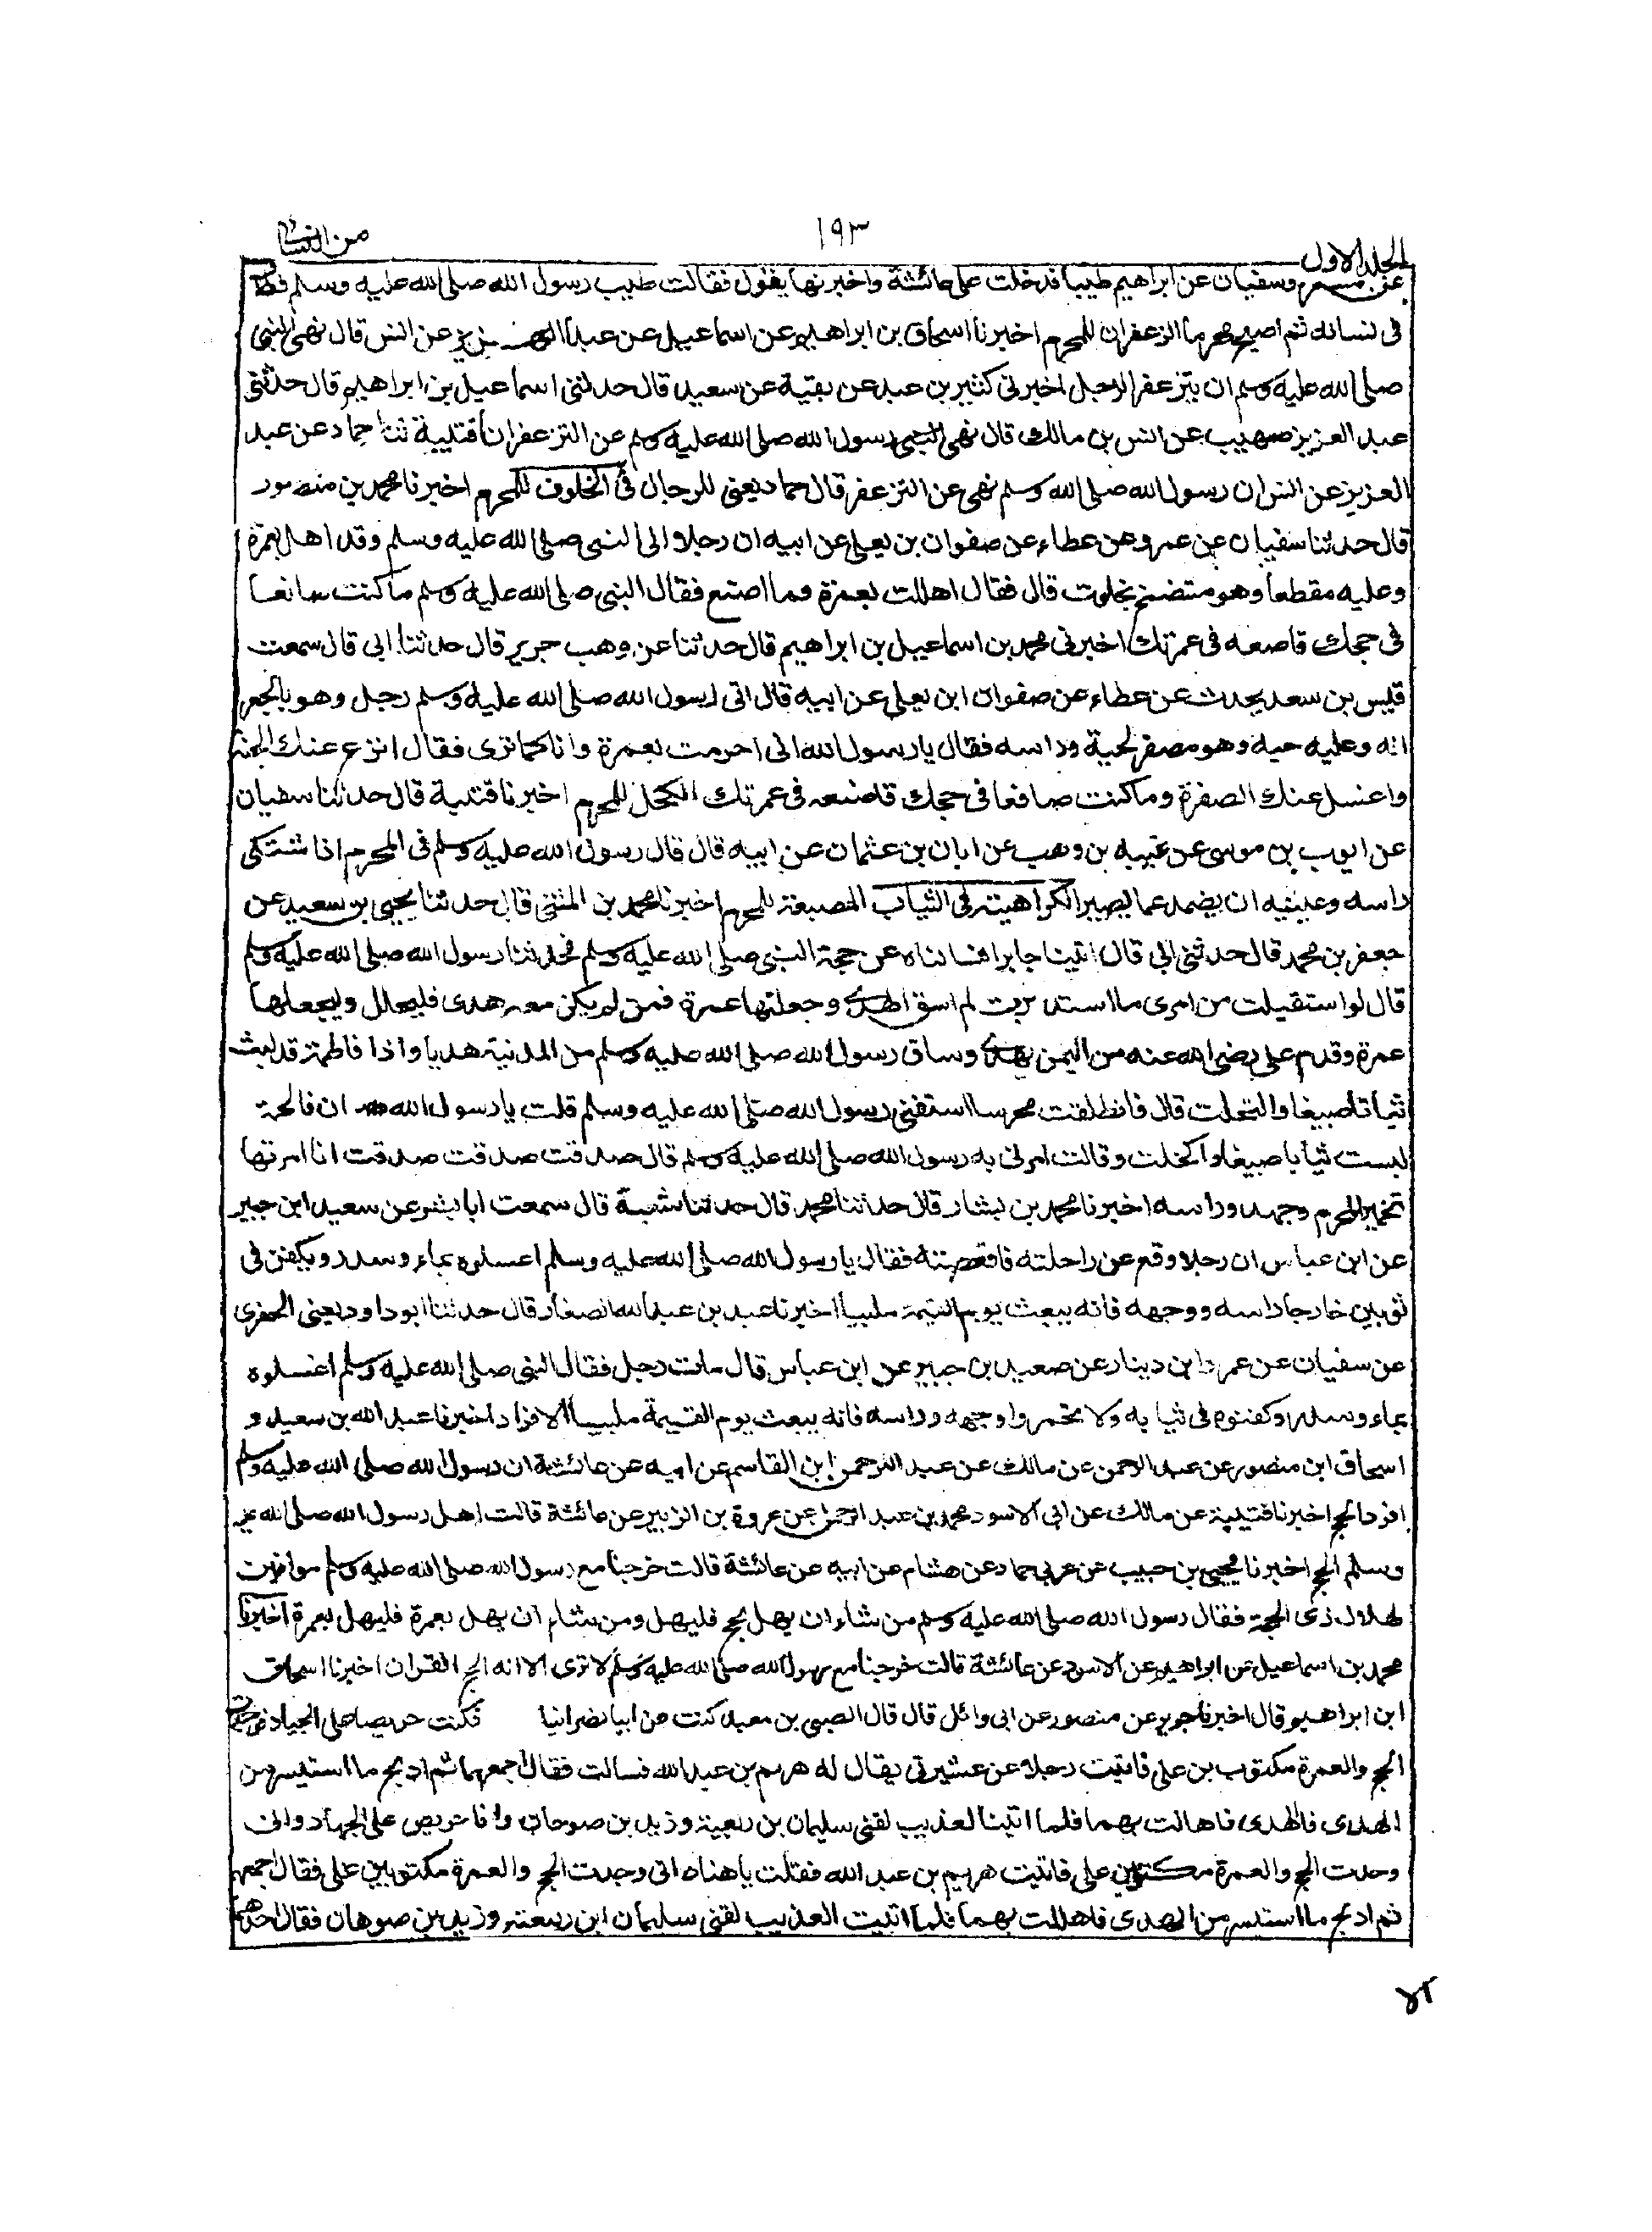 المجلد الاول
١٩٣
من النسائى
عن مسعر وسفيان عن ابراهيم طيبا فدخلت على عائشة واخبرتها بقول فقالت طيبت رسول الله صلى الله عليه وسلم فطاف
فى نسائه ثم اصبح محرما الزعفران للمحرم اخبرنا اسحاق بن ابراهيم عن اسماعيل عن عبد العزيز عن انس قال نهى النبى
صلى الله عليه وسلم ان يتزعفر الرجل اخبرنى كثير بن عبد عن بقية عن سعيد قال حدثنى اسماعيل بن ابراهيم قال حدثنى
عبد العزيز صهيب عن انس بن مالك قال نهى النبى رسول الله صلى الله عليه وسلم عن التزعفر انا قتيبة ثنا حماد عن عبد
العزيز عن انس ان رسول الله صلى الله وسلم نهى عن التزعفر قال حماد يعنى للرجال فى الخلوف للمحرم اخبرنا محمد بن منصور
قال حدثنا سفيان عن عمرو عن عطاء عن صفوان بن يعلى عن ابيه ان رجلا الى النبى صلى الله عليه وسلم وقد اهل بعمرة
وعليه مقطعا وهو متضمخ بخلوت قال فقال اهللت بعمرة وما اصنع فقال النبى صلى الله عليه وسلم ما كنت صانعا
فى حجك فاصعه فى عمرتك اخبرنى محمد بن اسماعيل بن ابراهيم قال حدثنا عن وهب جرير قال حدثنا ابى قال سمعت
قيس بن سعد يحدث عن عطاء عن صفوان ابن يعلى عن ابيه قال اتى رسول الله صلى الله عليه وسلم رجل وهو بالجعر
انه وعليه حبه وهو مصفر لحية وراسه فقال يا رسول الله انى احرمت بعمرة وانا كما ترى فقال انزع عنك الجبة
واغسل عنك الصفرة وما كنت صانعا فى حجك فاصنعه فى عمرتك الكحل للمحرم اخبرنا قتيبة قال حدثنا سفيان
عن ايوب بن موسى عن نبيه بن وهب عن ابان بن عثمان عن ابيه قال قال رسول الله صلى عليه وسلم فى المحرم اذا شتكى
راسه وعينيه ان يضمد عما بصبر الكراهيته فى الثياب المصبغة للمحرم اخبرنا محمد بن المثنى قال حدثنا يحيى بن سعيد عن
جعفر بن محمد قال حدثنى ابى قال اتينا جابرا فسالناه عن حجة النبى صلى الله عليه وسلم فحدثنا رسول الله صلى الله عليه وسلم
قال لو استقبلت من امرى ما استدبرت لم اسق الهدى وجعلتها عمرة فمن لم يكن معه هدى فليحلل وليجعلها
عمرة وقدم على رضى الله عنه من اليمن بهدى وساق رسول الله صلى الله عليه وسلم من المدينة هديا واذا فاطمة قد لبث
ثيابا صبيغا واكتحلت قال فانطلقت محرسا استفتى رسول الله صلى الله عليه وسلم قلت يا رسول الله ان فاطمة
لبست ثيابا صبيغا واكتحلت وقالت امرنى به رسول الله صلى الله عليه وسلم قال صدقت صدقت صدقت انا امرتها
تخمير المحرم وجهه وراسه اخبرنا محمد بن بشار قال حدثنا محمد قال حدثنا شعبة قال سمعت ابا بشر عن سعيد ابن جبير
عن ابن عباس ان رجلا وقع عن راحلته فاقعصته فقال يا رسول الله صلى الله عليه وسلم اغسلوه بماء وسدر ويكفن فى
ثوبين خارجا راسه ووجهه فانه يبعث يوم القيمة ملبيا اخبرنا عبد بن عبد الله الصفار قال حدثنا ابو داود يعنى الحفرى
عن سفيان عن عمر دابن دينار عن صعيد بن جبير عن ابن عباس قال مات رجل فقال النبى صلى الله عليه وسلم اغسلوه
بماء وسدر وكفنوه فى ثيابه ولا تخمروا وجهه وراسه فانه يبعث يوم القيمة ملبيا الافراد اخبرنا عبد الله بن سعيد و
اسحاق ابن منصور عن عبد الرحمن عن مالك عن عبد الرحمن ابن القاسم عن ابيه عن عائشة ان رسول الله صلى الله عليه وسلم
افرد الحج اخبرنا قتيبة عن مالك عن ابى الاسود محمد بن عبد الرحمن عن عروة بن الزبير عن عائشة قالت اهل رسول الله صلى الله عليه
وسلم الحج اخبرنا يحيى بن حبيب عن عربى حماد عن هشام عن ابيه عن عائشة قالت خرجنا مع رسول الله صلى الله عليه وسلم موافين
لهلال ذى الحجة فقال رسول الله صلى الله عليه وسلم من شاء ان يهل بحج فليهل ومن شاء ان يهل بعمرة فليهل بعمرة اخبرنا
محمد بن اسماعيل عن ابراهيم عن الاسود عن عائشة قالت خرجنا مع رسول الله صلى الله عليه وسلم لا ترى الا انه الحج القران اخبرنا اسحاق
ابن ابراهيم قال اخبرنا جرير عن منصور عن ابى وائل قال قال الصبى بن معبد كنت عرابيا نصرانيا فكنت حريصا على الجهاد فوجدت
الحج والعمرة مكتوب بن على فاتيت رجلا عن عشيرتى يقال له هريم بن عبد الله فسالت فقال اجمعهما ثم اذبح ما استيسر من
الهدى فالهدى فاهللت بهما فلما اتينا لعذيب لقنى سليمان بن ربيعة وزيد بن صوحان وانا حريص على الجهاد وانى
وجدت الحج والعمرة مكتوبين على فاتيت هريم بن عبد الله فقلت ياهناه انى وجدت الحج والعمرة مكتوبين على فقال اجمعهما
ثم اذبح ما استيسر من الهدى فاهللت بهما فلما اتيت العذيب لقنى سليمان ابن ربيعة وزيد بن صوهان فقال احدهما